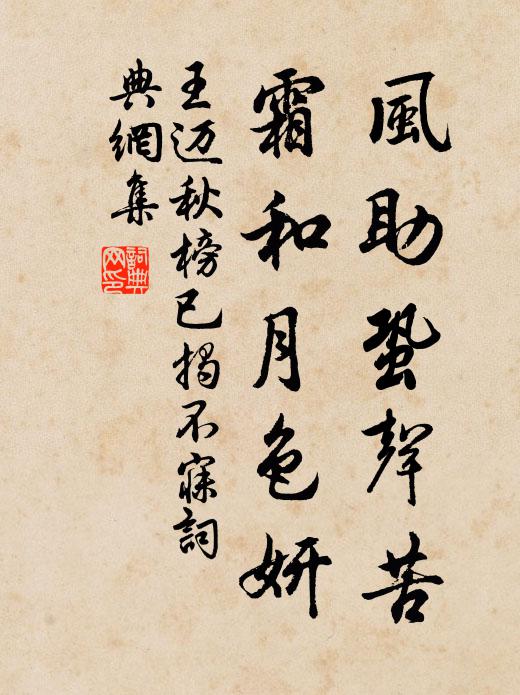 風助蛩聲苦
霜和月色妍
王迈秋榜已揭不寐詞
典網集
詞典
网印